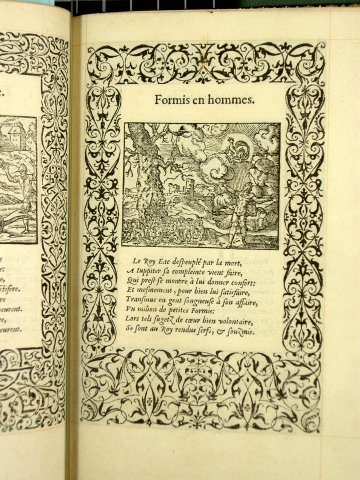 Formis en hommes.
Le Roy Eac despeuplé par la mort,
A Iuppiter sa complainte vient faire,
Qui prest se montre à lui donner confort:
Et mesmement, pour bien lui satisfaire,
Transmue en gent songneuse à son affaire,
Vn milion de petites Formis:
Lors tels sugetz de cœur bien volontaire,
se sont au Roy rendue serfs, & souzmis.